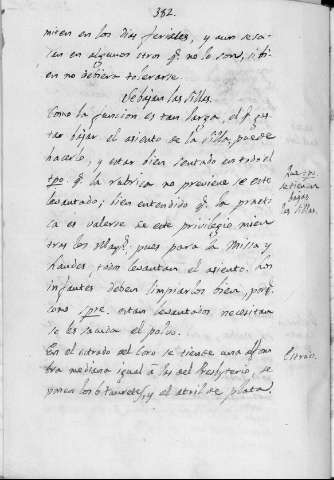 382.
miten en los dias feriales, y aun se ta-
len en algunos otros q.e no lo son, si bi-
en no debiera tolerarse.
Se bajan las sillas.
Como la funcion es tan larga, el q.e gus-
tar bajar el asiento de la silla, puede
hacerlo, y estar bien sentado en todo el
tpo. q.e la rubrica no previene se este
levantado; bien entendido q.e la practi-
ca es valerse de este privilegio mien
tras los Mayt.s pues para la Missa y
Laudes, todos levantan el asiento. Los
infantes deben limpiarlos bien, porq.e
como spre. estan levantados, necesitan
se les sacuda el polvo.
En el estrado del Coro se tiende una alfom
bra mediana igual à las del Presbyterio, se
ponen los 6 taburetes, y el atril de plata.
bajar
las sillas.
Estrado.